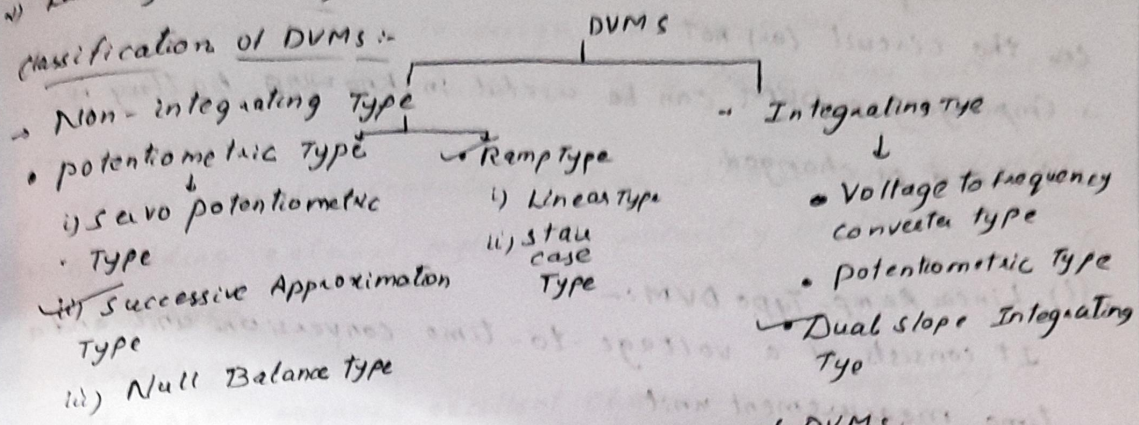 DVMS
Classification of DVMs :-
→ Non-integrating Type
• potentiometric Type
i) servo potentiometric
Type
ii) Successive Approximation
Type
iii) Null Balance Type
Ramp Type
i) Linear Type
ii) stair
case
Type
Integrating Tye
↓
• Voltage to frequency
converter type
• potentiometric Type
Dual slope Integrating
Type
DVMs